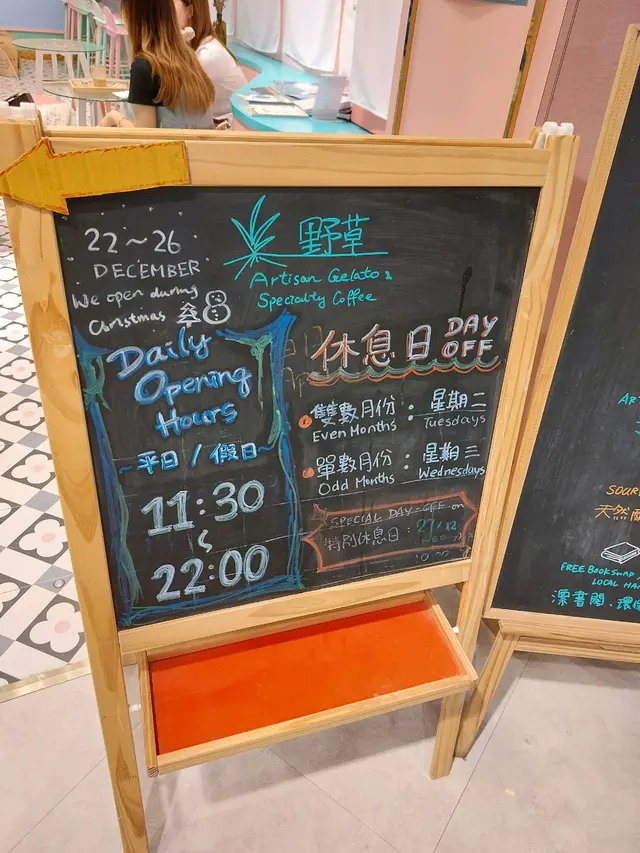 22~26
DECEMBER
We open during
Christmas
野草
Artisan Gelato &
Specialty Coffee
Daily
Opening
Hours
~平日/假日~
11:30
~
22:00
休息日 DAY OFF
雙數月份 : 星期二
Even Months Tuesdays
單數月份 : 星期三
Odd Months Wednesdays
SPECIAL DAY-OFF on
特別休息日: 27/12
天然
FREE BOOK SWAP
LOCAL
漂書閣、環保